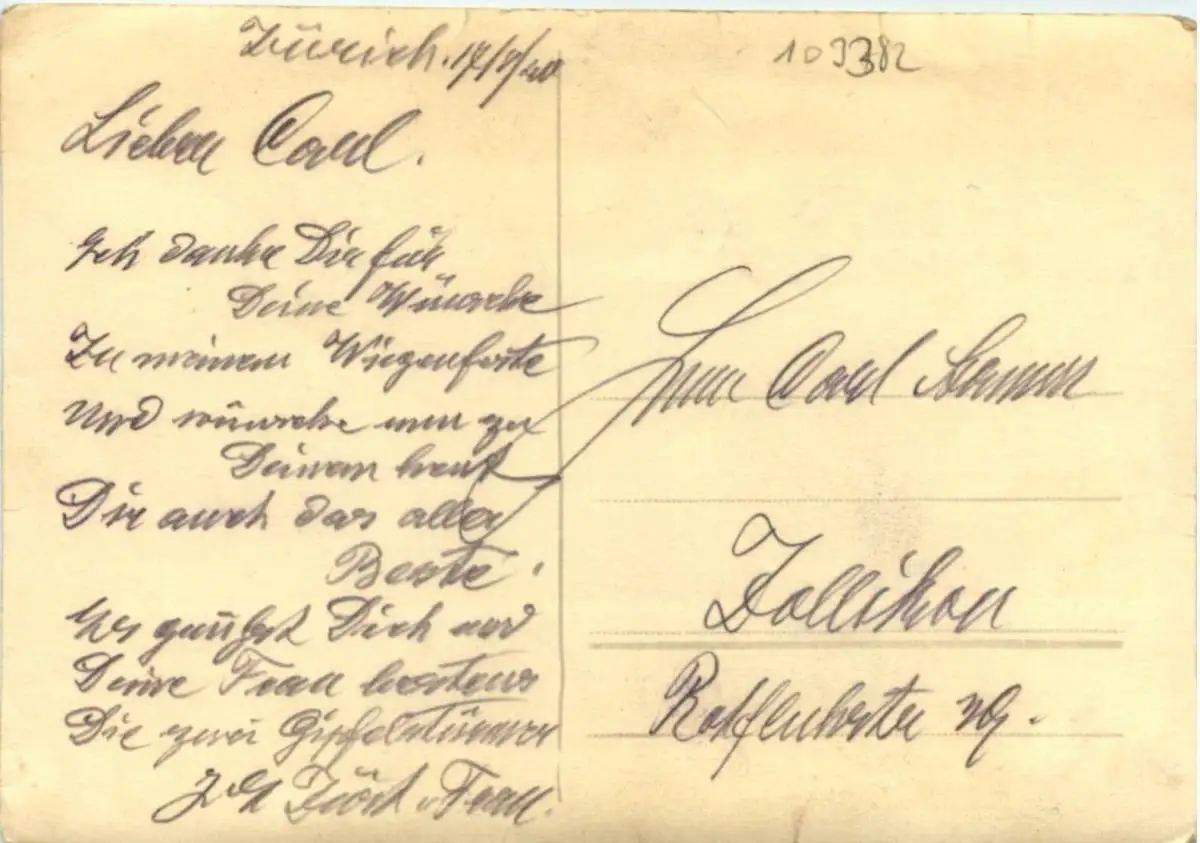 Zürich. 17/7/40
109382
Lieber Carl.
Ich danke Dir für
Deine Wünsche
Zu meinem Wiegenfeste
Und wünsche nun zu
Deinem heut
Dir auch das aller
Beste.
Es grüsst Dich und
Deine Frau bestens
Die zwei Gipfelstürmer
u. Frau.
Herrn Carl
Zollikon